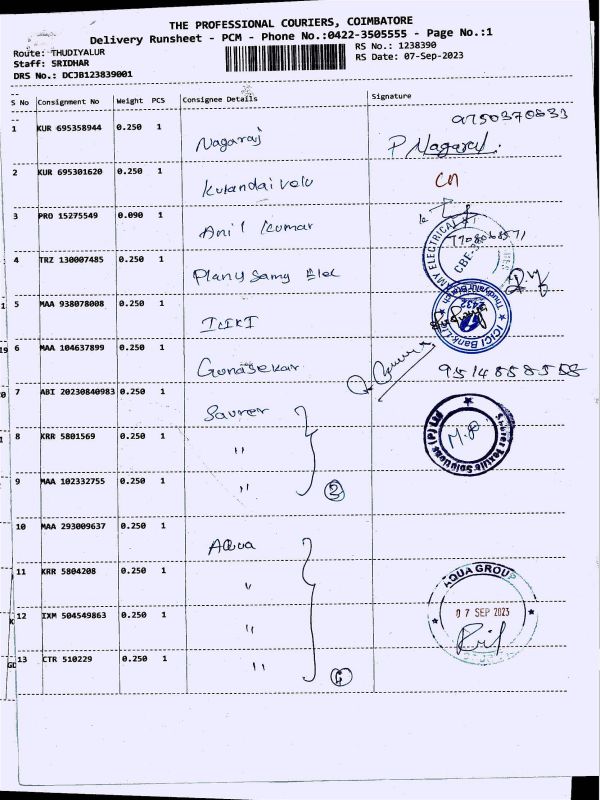 THE PROFESSIONAL COURIERS, COIMBATORE
Delivery Runsheet - PCM - Phone No.:0422-3505555 - Page No.:1
Route: THUDIYALUR
RS No.: 1238390
Staff: SRIDHAR
RS Date: 07-Sep-2023
DRS No.: DCJB123839001
S No Consignment No Weight PCS Consignee Details Signature
9750370833
1 KUR 695358944 0.250 1 Nagaraj P. Nagaraj.
2 KUR 695301620 0.250 1 Kulandaivelu
3 PRO 15275549 0.090 1 Anil Kumar
MY ELECTRICAL
CBE-
4 TRZ 130007485 0.250 1 Plany Samy Elec
5 MAA 938078008 0.250 1 ICICI
ICICI Bank Thudiyalur Branch
2432
6 MAA 104637899 0.250 1 Gunasekar
9514858558
7 ABI 20230840983 0.250 1 Saurer
8 KRR 5801569 0.250 1 "
M.P
Saurer Textile Solutions (P) Ltd
9 MAA 102332755 0.250 1 " 3
10 MAA 293009637 0.250 1 Aqua
11 KRR 5804208 0.250 1 "
AQUA GROUP
12 IXM 504549863 0.250 1 "
07 SEP 2023
13 CTR 510229 0.250 1 " 4